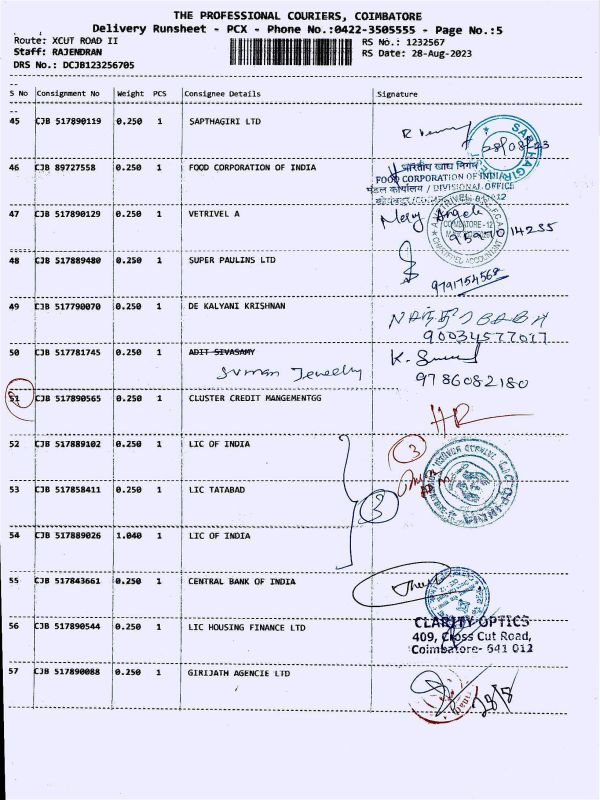 THE PROFESSIONAL COURIERS, COIMBATORE
Delivery Runsheet - PCX - Phone No.:0422-3505555 - Page No.:5
Route: XCUT ROAD II RS No.: 1232567
Staff: RAJENDRAN RS Date: 28-Aug-2023
DRS No.: DCJB123256705
S No Consignment No Weight PCS Consignee Details Signature
45 CJB 517890119 0.250 1 SAPTHAGIRI LTD
28/08/23
SAPTHAGIRI
46 CJB 89727558 0.250 1 FOOD CORPORATION OF INDIA
भारतीय खाद्य निगम
FOOD CORPORATION OF INDIA
मंडल कार्यालय / DIVISIONAL OFFICE
47 CJB 517890129 0.250 1 VETRIVEL A
Mery Angela
COIMBATORE-12
CHARTERED ACCOUNTANT
9597014255
48 CJB 517889480 0.250 1 SUPER PAULINS LTD
9791754568
49 CJB 517790070 0.250 1 DE KALYANI KRISHNAN
50 CJB 517781745 0.250 1 ADIT SIVASAMY
Suman Jewelry
9786082180
51 CJB 517890565 0.250 1 CLUSTER CREDIT MANGEMENTGG
52 CJB 517889102 0.250 1 LIC OF INDIA
3
53 CJB 517858411 0.250 1 LIC TATABAD
3
54 CJB 517889026 1.040 1 LIC OF INDIA
55 CJB 517843661 0.250 1 CENTRAL BANK OF INDIA
56 CJB 517890544 0.250 1 LIC HOUSING FINANCE LTD
CLARITY OPTICS
409, Cross Cut Road,
Coimbatore- 641 012
57 CJB 517890088 0.250 1 GIRIJATH AGENCIE LTD
28/8